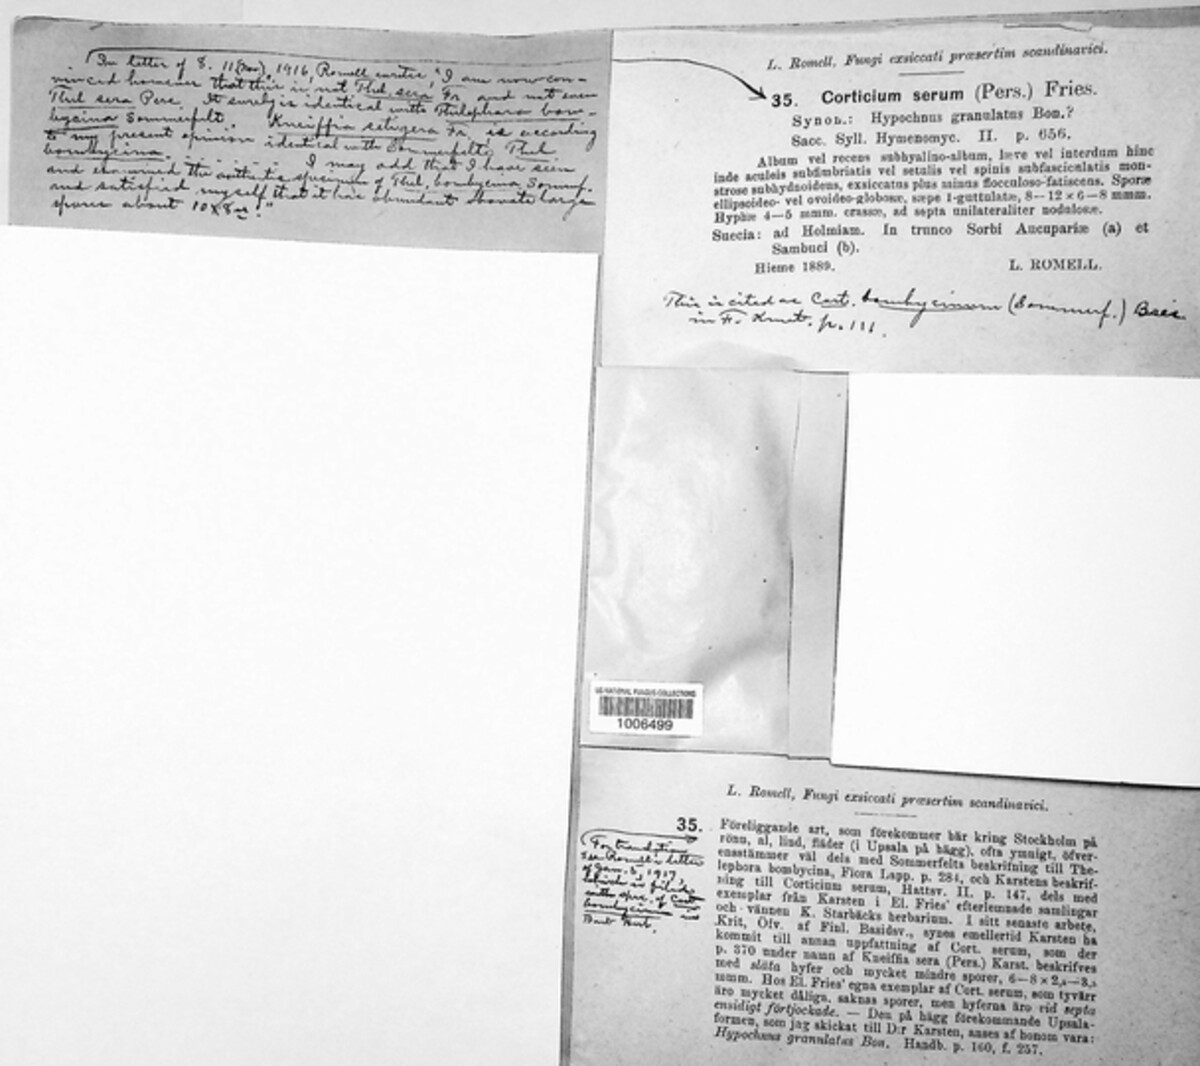 In letter of 8. 11 (Nov), 1916, Romell writes "I am now con-
vinced however that this is not Thel. sera Fr. and not even
Thel sera Pers. It surely is identical with Thelephora bom-
bycina Sommerfelt. Kneiffia setigera Fr. is according
to my present opinion identical with Sommerfelt's Thel
bombycina. - - - - - I may add that I have seen
and examined the authentic specimen of Thel. bombycina Sommf.
and satisfied myself that it has abundant large
spores about 10 x 8 m."
L. Romell, Fungi exsiccati præsertim scandinavici.
35. Corticium serum (Pers.) Fries.
Synon.: Hypochnus granulatus Bon.?
Sacc. Syll. Hymenomyc. II. p. 656.
Album vel recens subhyalino-album, læve vel interdum hinc
inde aculeis subfimbriatis vel setulis vel spinis subfasciculatis mon-
strose subhydnoideus, exsiccatus plus minus flocculoso-fatiscens. Sporæ
ellipsoideo- vel ovoideo-globosæ, sæpe 1-guttulatæ, 8—12 × 6—8 mmm.
Hyphæ 4—5 mmm. crassæ, ad septa unilateraliter nodulosæ.
Suecia: ad Holmiam. In trunco Sorbi Aucupariæ (a) et
Sambuci (b).
Hieme 1889. L. ROMELL.
This is cited as Cort. bombycinum (Sommerf.) Bres.
in F. Kmet. p. 111.
US NATIONAL FUNGUS COLLECTIONS
1006499
L. Romell, Fungi exsiccati præsertim scandinavici.
35.
(For translation
see Romell's letter
of Jan. 5, 1917
which is filed
with spec. of Cort
bombycinum in
Burt Herb.
Föreliggande art, som förekommer här kring Stockholm på
rönn, al, lind, fläder (i Upsala på hägg), ofta ymnigt, öfver-
ensstämmer väl dels med Sommerfelts beskrifning till The-
lephora bombycina, Flora Lapp. p. 284, och Karstens beskrif-
ning till Corticium serum, Hattsv. II. p. 147, dels med
exemplar från Karsten i El. Fries' efterlemnade samlingar
och vännen K. Starbäcks herbarium. I sitt senaste arbete,
Krit. Öfv. af Finl. Basidsv., synes emellertid Karsten ha
kommit till annan uppfattning af Cort. serum, som der
p. 370 under namn af Kneiffia sera (Pers.) Karst. beskrifves
med släta hyfer och mycket mindre sporer, 6—8 × 2,5—3,5
mmm. Hos El. Fries' egna exemplar af Cort. serum, som tyvärr
äro mycket dåliga, saknas sporer, men hyferna äro vid septa
ensidigt förtjockade. — Den på hägg förekommande Upsala-
formen, som jag skickat till D:r Karsten, anses af honom vara:
Hypochnus granulatus Bon. Handb. p. 160, f. 257.